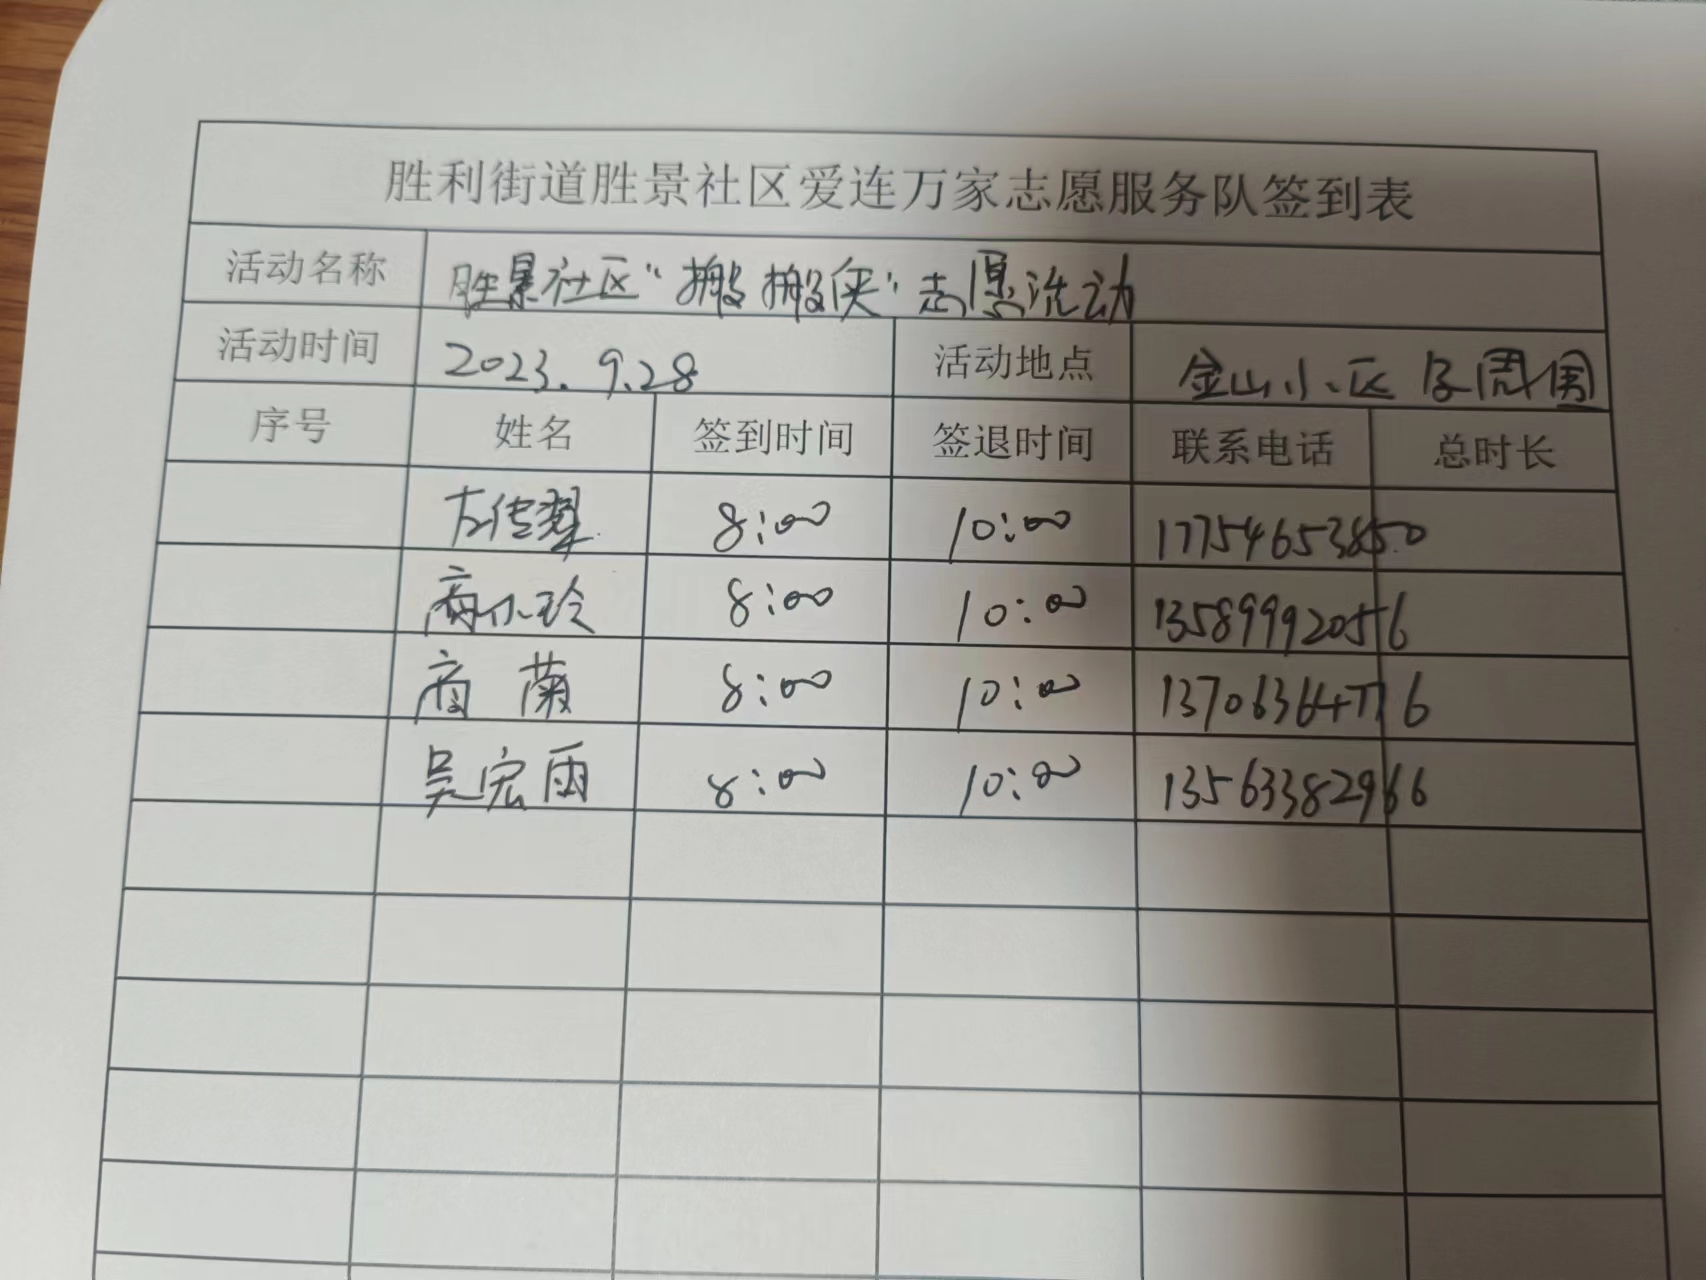 胜利街道胜景社区爱连万家志愿服务队签到表
活动名称 胜景社区"搬搬侠"志愿活动
活动时间 2023.9.28 活动地点 金山小区及周围
序号 姓名 签到时间 签退时间 联系电话 总时长
左传翠 8:00 10:00 17754653850
商小玲 8:00 10:00 13589992056
商 菊 8:00 10:00 13706364776
吴宏雨 8:00 10:00 13563382966